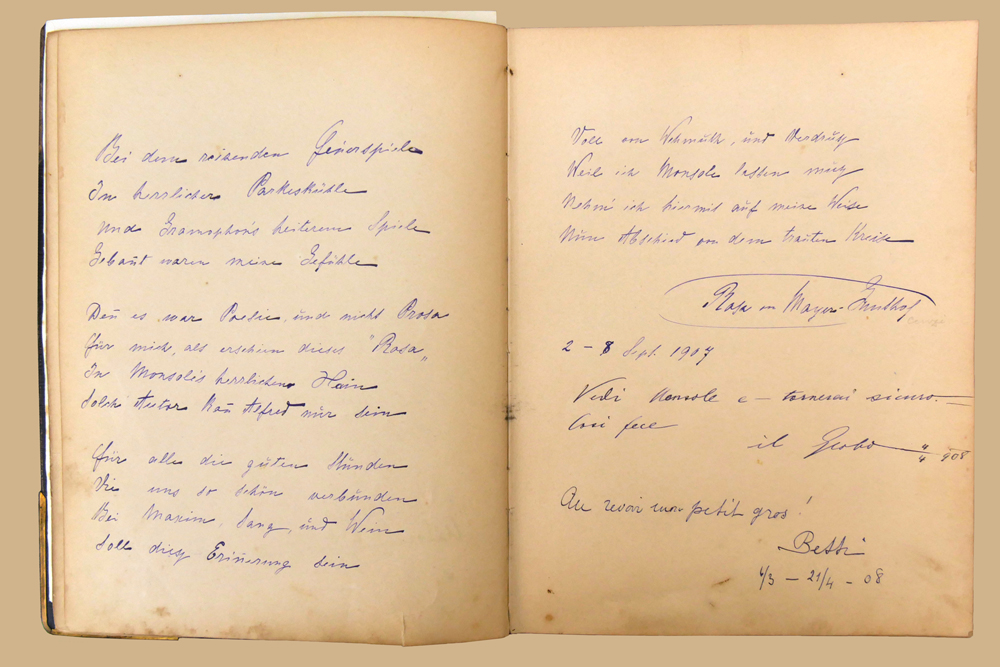 Bei dem reihenden Feuerspiele
In herrlicher Parkeskühle
und Gramophon's heiterem Spiele
Gebaut waren meine Gefühle
Deñ es war Poesie, und nicht Prosa
für mich, als erschien dieses "Rosa„
In Monsolés herrlichem Hain
Solch Hector kañ Alfred nur sein
für alle die guten Stunden
Die uns so schön verbunden
Bei Maxim, Sang, und Wein
Soll dieß Erinnerung sein
Voll von Wehmuth, und Verdruß
Weil ich Monsole lassen muß
Nehm' ich hiermit auf meine Weise
Nun Abschied von dem trauten Kreise
Rosa von Mayer-
2 - 8 Sept. 1907
Vedi Monsole e - tornerai sicuro. -
Cosi fece
il 4/4 908
Au revoir mon petit gros!
Betti
4/3 - 21/4 - 08